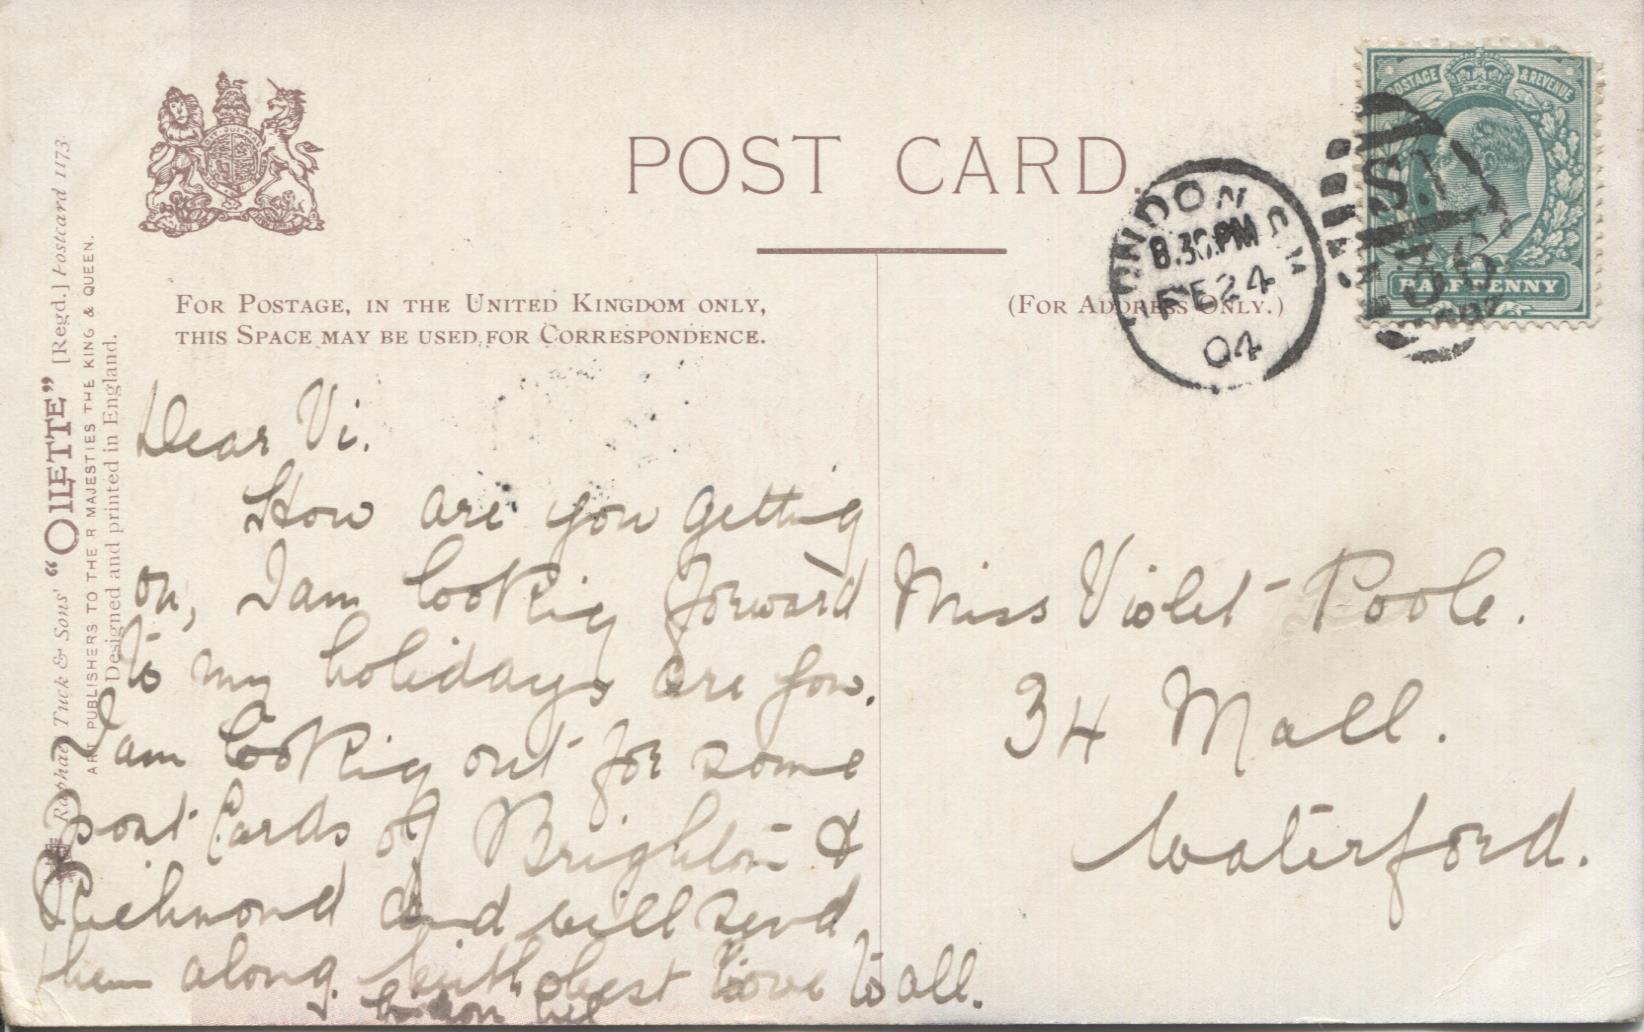 POST CARD.
FOR POSTAGE, IN THE UNITED KINGDOM ONLY,
THIS SPACE MAY BE USED FOR CORRESPONDENCE.
(FOR ADDRESS ONLY.)
POSTAGE & REVENUE
HALFPENNY
LONDON S.W
8.30.PM
FE 24
04
S.W
36
Raphael Tuck & Sons' "OILETTE" [Regd.] Postcard 1173.
ART PUBLISHERS TO THEIR MAJESTIES THE KING & QUEEN.
Designed and printed in England.
Dear Vi.
How are you getting
on, I am looking forward
to my holidays are you.
I am looking out for some
post Cards of Brighton &
Richmond and will send
them along. with best love to all.
Miss Violet Poole.
34 Mall.
Waterford.